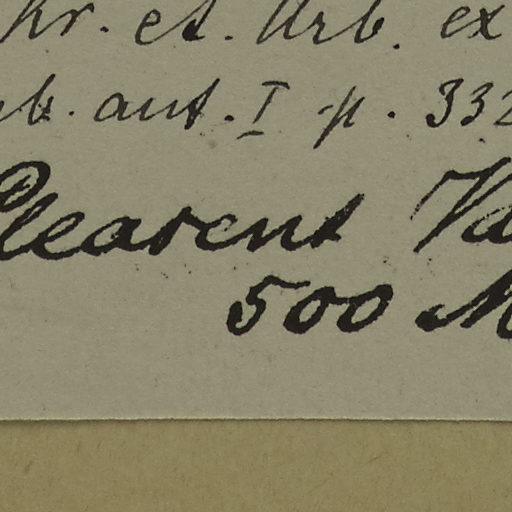 Kr. et. Urb. ex
b. aut. I p. 332
Plearent Va
500 M